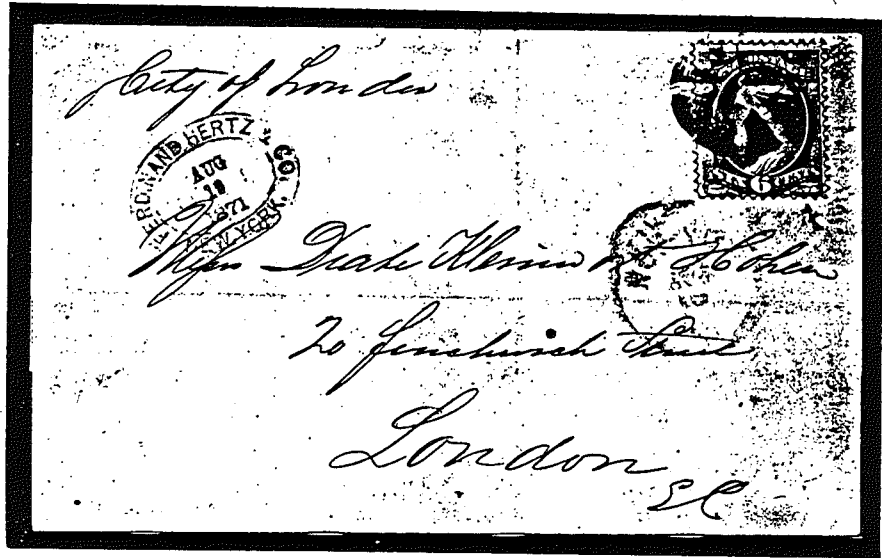 City of London
FERDINAND HERTZ & CO.
AUG
19
1871
NEW YORK
Messrs Drake Kleinwort & Cohen
20 Fenchurch Street
London
EC